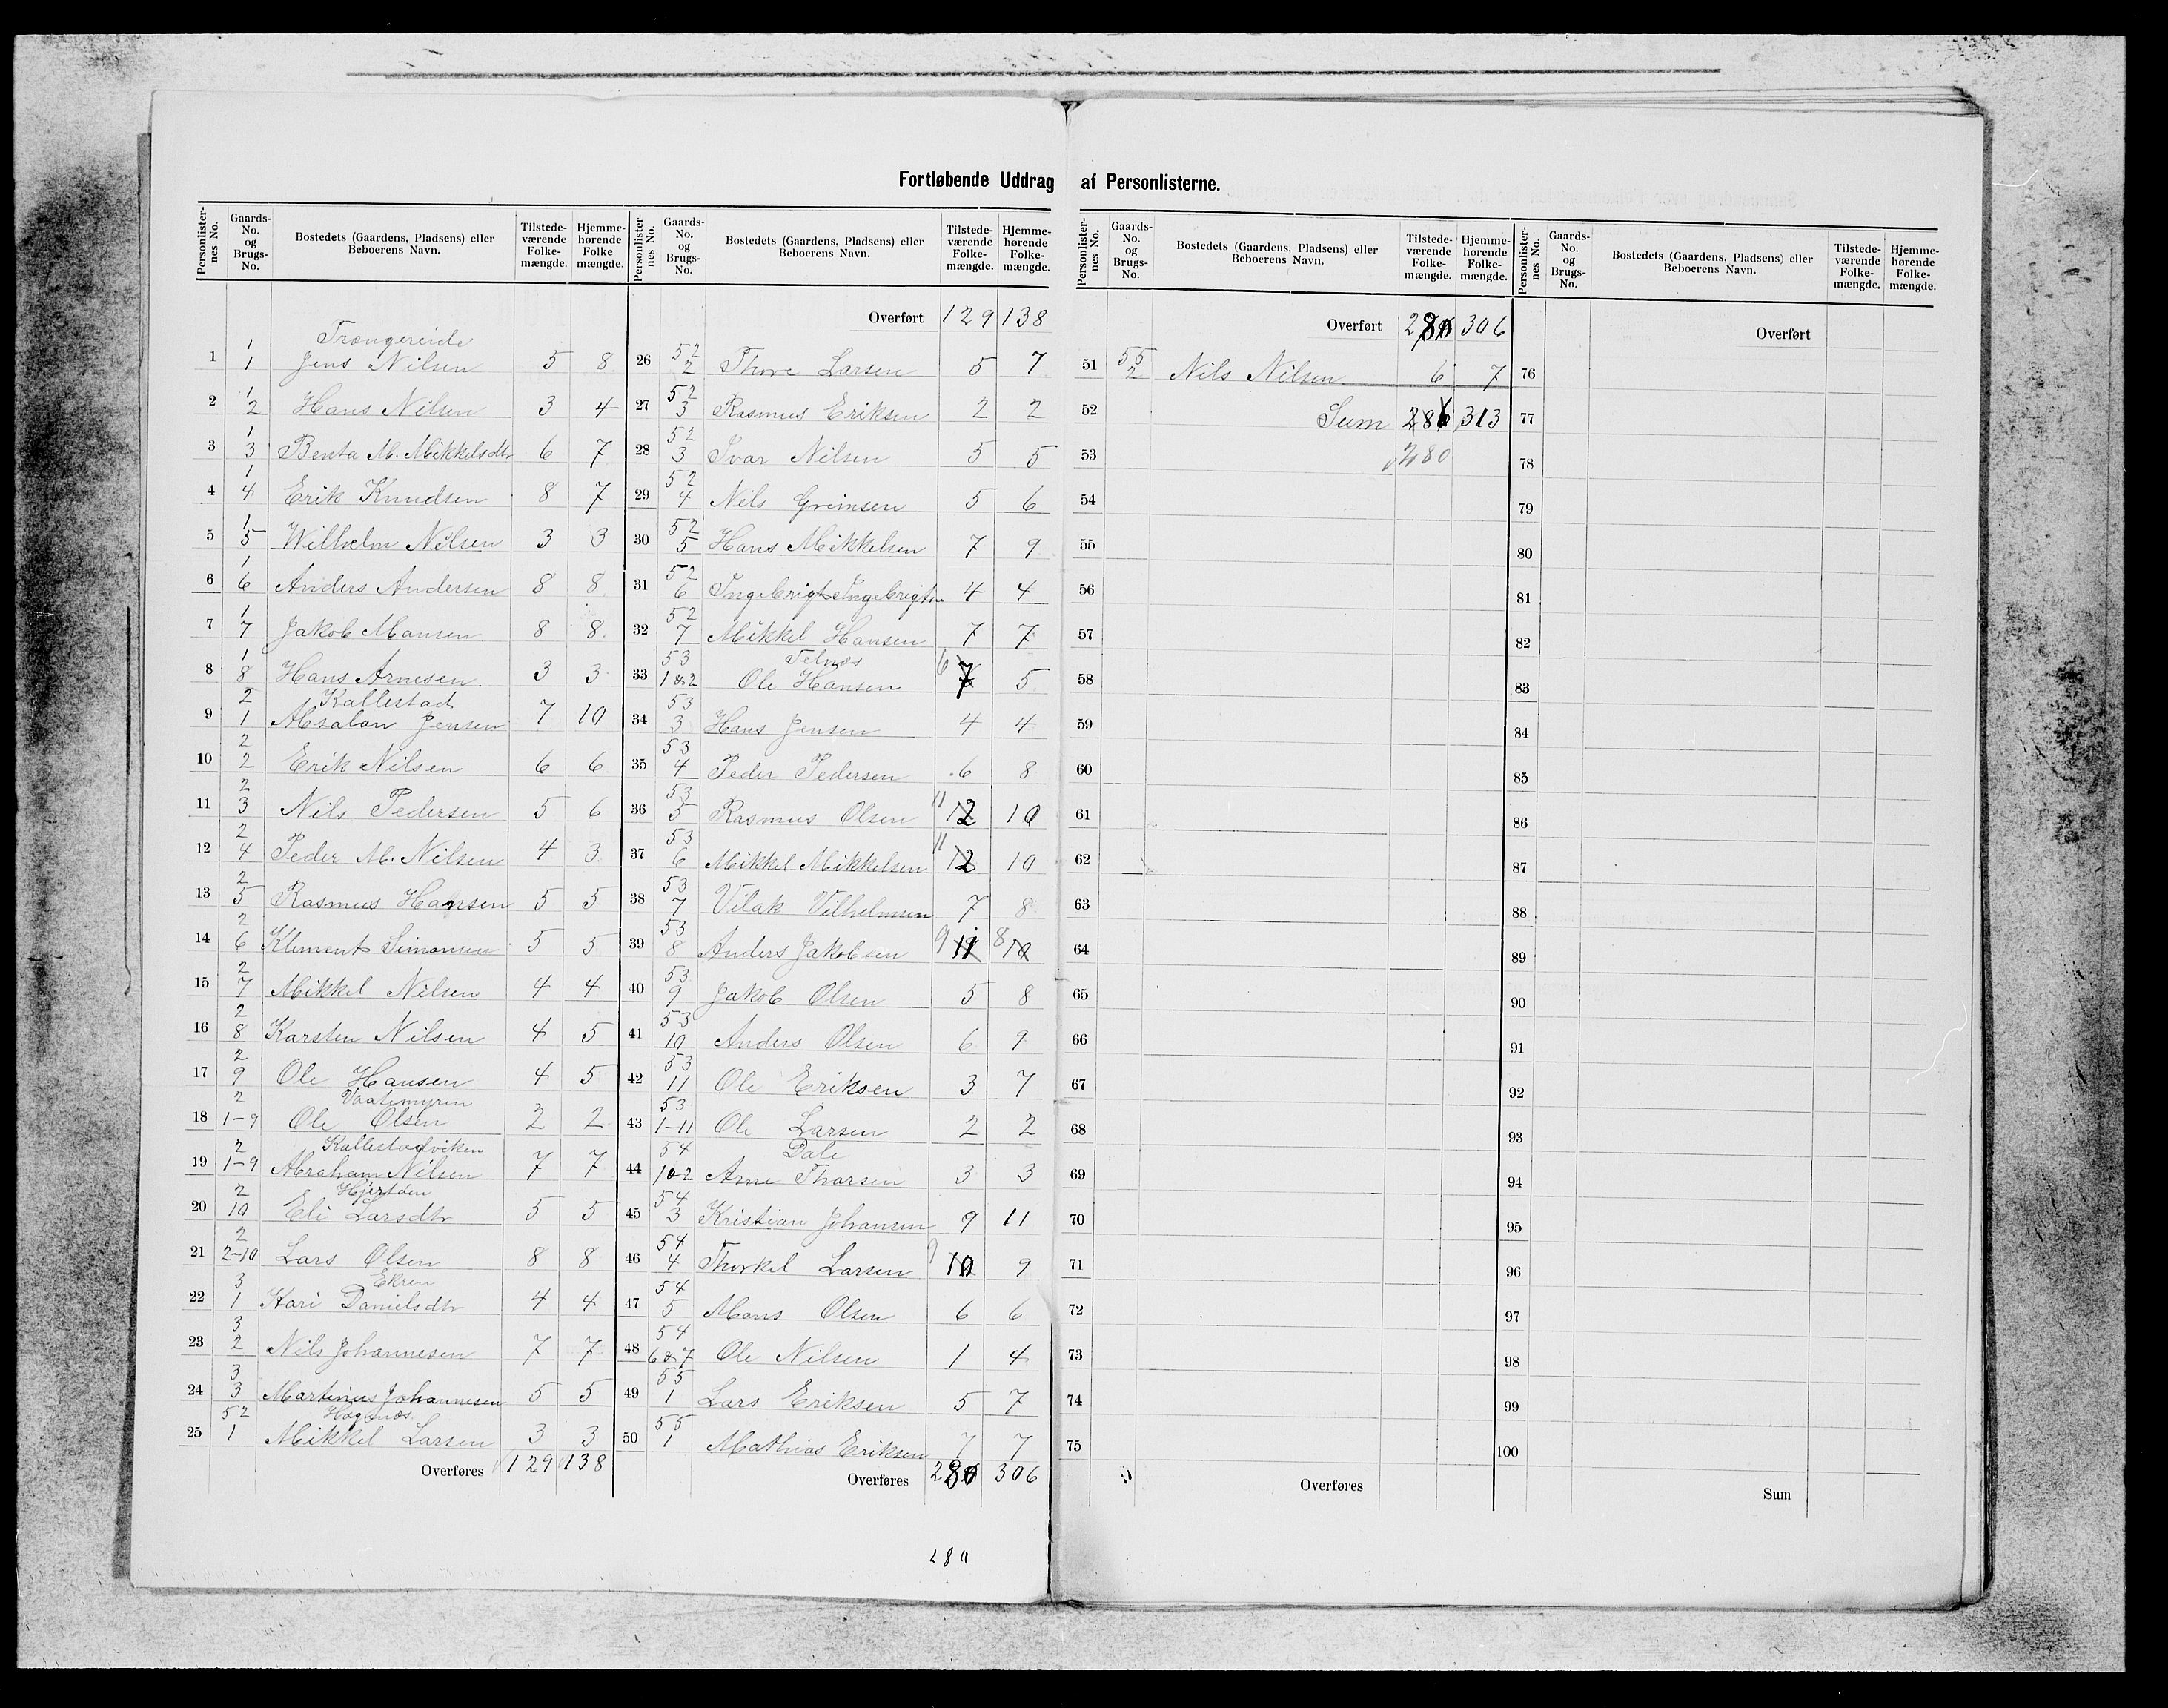 Fortløbende Uddrag af Personlisterne.
Personlisternes No. Gaards-No. og Brugs-No. Bostedets (Gaardens, Pladsens) eller Beboerens Navn. Tilstedeværende Folkemængde. Hjemmehørende Folkemængde.
Trængereide
1 1/1 Jens Nilsen 5 8
2 1/2 Hans Nilsen 3 4
3 1/3 Benta M. Mikkelsdtr 6 7
4 1/4 Erik Knudsen 8 7
5 1/5 Wilhelm Nilsen 3 3
6 1/6 Anders Andersen 8 8
7 1/7 Jakob Mansen 8 8
8 1/8 Hans Arnesen 3 3
Kallestad
9 2/1 Absalon Jensen 7 10
10 2/2 Erik Nilsen 6 6
11 2/3 Nils Pedersen 5 6
12 2/4 Peder M. Nilsen 4 3
13 2/5 Rasmus Hansen 5 5
14 2/6 Klement Simonsen 5 5
15 2/7 Mikkel Nilsen 4 4
16 2/8 Karsten Nilsen 4 5
17 2/9 Ole Hansen 4 5
18 2/1-9 Ole Olsen 2 2
Kallestadviken
19 2/1-9 Abraham Nilsen 7 7
20 2/10 Eli Larsdtr 5 5
21 2/2-10 Lars Olsen 8 8
Ekren
22 3/1 Kari Danielsdtr 4 4
23 3/2 Nils Johannesen 7 7
24 3/3 Martinus Johannesen 5 5
Hagenæs
25 52/1 Mikkel Larsen 3 3
Overføres 129 138
Personlisternes No. Gaards-No. og Brugs-No. Bostedets (Gaardens, Pladsens) eller Beboerens Navn. Tilstedeværende Folkemængde. Hjemmehørende Folkemængde.
Overført 129 138
26 52/2 Thore Larsen 5 7
27 52/3 Rasmus Eriksen 2 2
28 52/3 Ivar Nilsen 5 5
29 52/4 Nils Grimsen 5 6
30 52/5 Hans Mikkelsen 7 9
31 52/6 Ingebrigt Ingebrigtsen 4 4
32 52/7 Mikkel Hansen 7 7
Telnæs
33 53/1&2 Ole Hansen 6 7 5
34 53/3 Hans Jensen 4 4
35 53/4 Peder Pedersen 6 8
36 53/5 Rasmus Olsen 11 12 10
37 53/6 Mikkel Mikkelsen 11 12 10
38 53/7 Vilak Vilhelmsen 7 8
39 53/8 Anders Jakobsen 9 11 8 10
40 53/9 Jakob Olsen 5 8
41 53/10 Anders Olsen 6 9
42 53/11 Ole Eriksen 3 7
43 53/1-11 Ole Larsen 2 2
Dale
44 54/1&2 Arne Thorsen 3 3
45 54/3 Kristian Johansen 9 11
46 54/4 Thorkel Larsen 9 10 9
47 54/5 Mons Olsen 6 6
48 54/6&7 Ole Nilsen 1 4
49 55/1 Lars Eriksen 5 7
50 55/1 Mathias Eriksen 7 7
Overføres 280 306
280
Personlisternes No. Gaards-No. og Brugs-No. Bostedets (Gaardens, Pladsens) eller Beboerens Navn. Tilstedeværende Folkemængde. Hjemmehørende Folkemængde.
Overført 280 306
51 55/2 Nils Nilsen 6 7
52 Sum 286 313
53 280
54
55
56
57
58
59
60
61
62
63
64
65
66
67
68
69
70
71
72
73
74
75
Overføres
Personlisternes No. Gaards-No. og Brugs-No. Bostedets (Gaardens, Pladsens) eller Beboerens Navn. Tilstedeværende Folkemængde. Hjemmehørende Folkemængde.
Overført
76
77
78
79
80
81
82
83
84
85
86
87
88
89
90
91
92
93
94
95
96
97
98
99
100
Sum